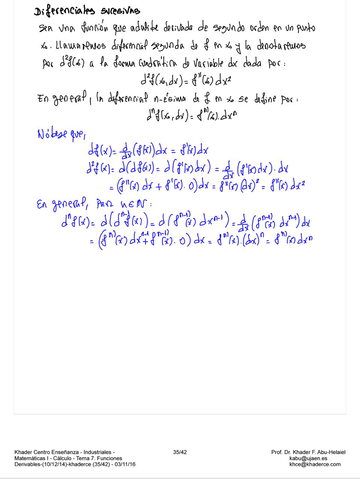 Diferenciales sucesivas
Sea una función que admite derivada de segundo orden en un punto
x₀. Llamaremos diferencial segunda de f en x₀ y la denotaremos
por d²f(x₀) a la forma cuadrática de variable dx dada por:
d²f(x₀,dx) = f''(x₀) dx²
En general, la diferencial n-ésima de f en x₀ se define por:
dⁿf(x₀,dx) = fⁿ⁾(x₀).dxⁿ
Nótese que,
df(x) = d/dx (f(x)) dx = f'(x) dx
d²f(x) = d(df(x)) = d(f'(x) dx) = d/dx (f'(x) dx). dx
= (f''(x) dx + f'(x). 0) dx = f''(x) (dx)² = f''(x) dx²
En general, para n∈ℕ:
dⁿf(x) = d(dⁿ⁻¹f(x)) = d(fⁿ⁻¹⁾(x) dxⁿ⁻¹) = d/dx (fⁿ⁻¹⁾(x) dxⁿ⁻¹) dx
= (fⁿ⁾(x) dxⁿ⁻¹ + fⁿ⁻¹⁾(x). 0) dx = fⁿ⁾(x). (dx)ⁿ = fⁿ⁾(x) dxⁿ
Khader Centro Enseñanza - Industriales -
Matemáticas I - Cálculo - Tema 7. Funciones
Derivables-(10/12/14)-khaderce (35/42) - 03/11/16
35/42
Prof. Dr. Khader F. Abu-Helaiel
kabu@ujaen.es
khce@khaderce.com